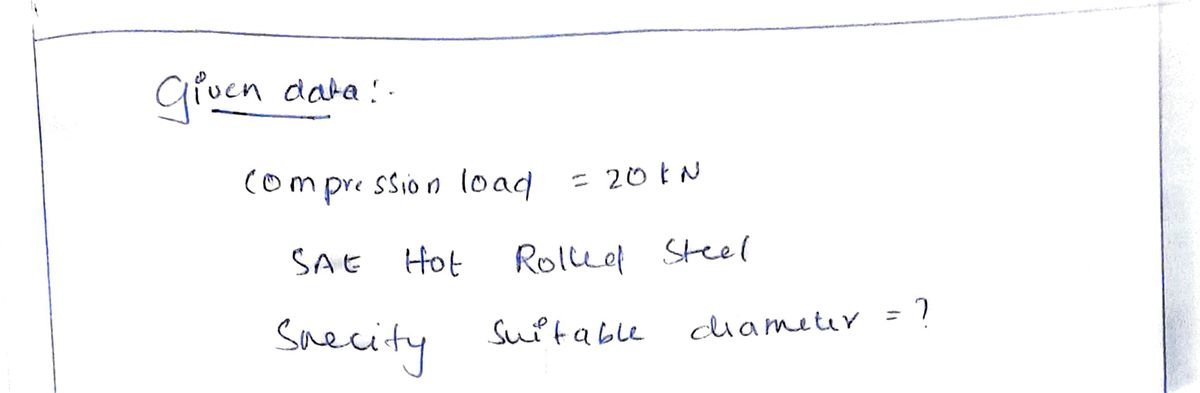 Given data :-
Compression load = 20 kN
SAE Hot Rolled Steel
Specify Suitable diameter = ?